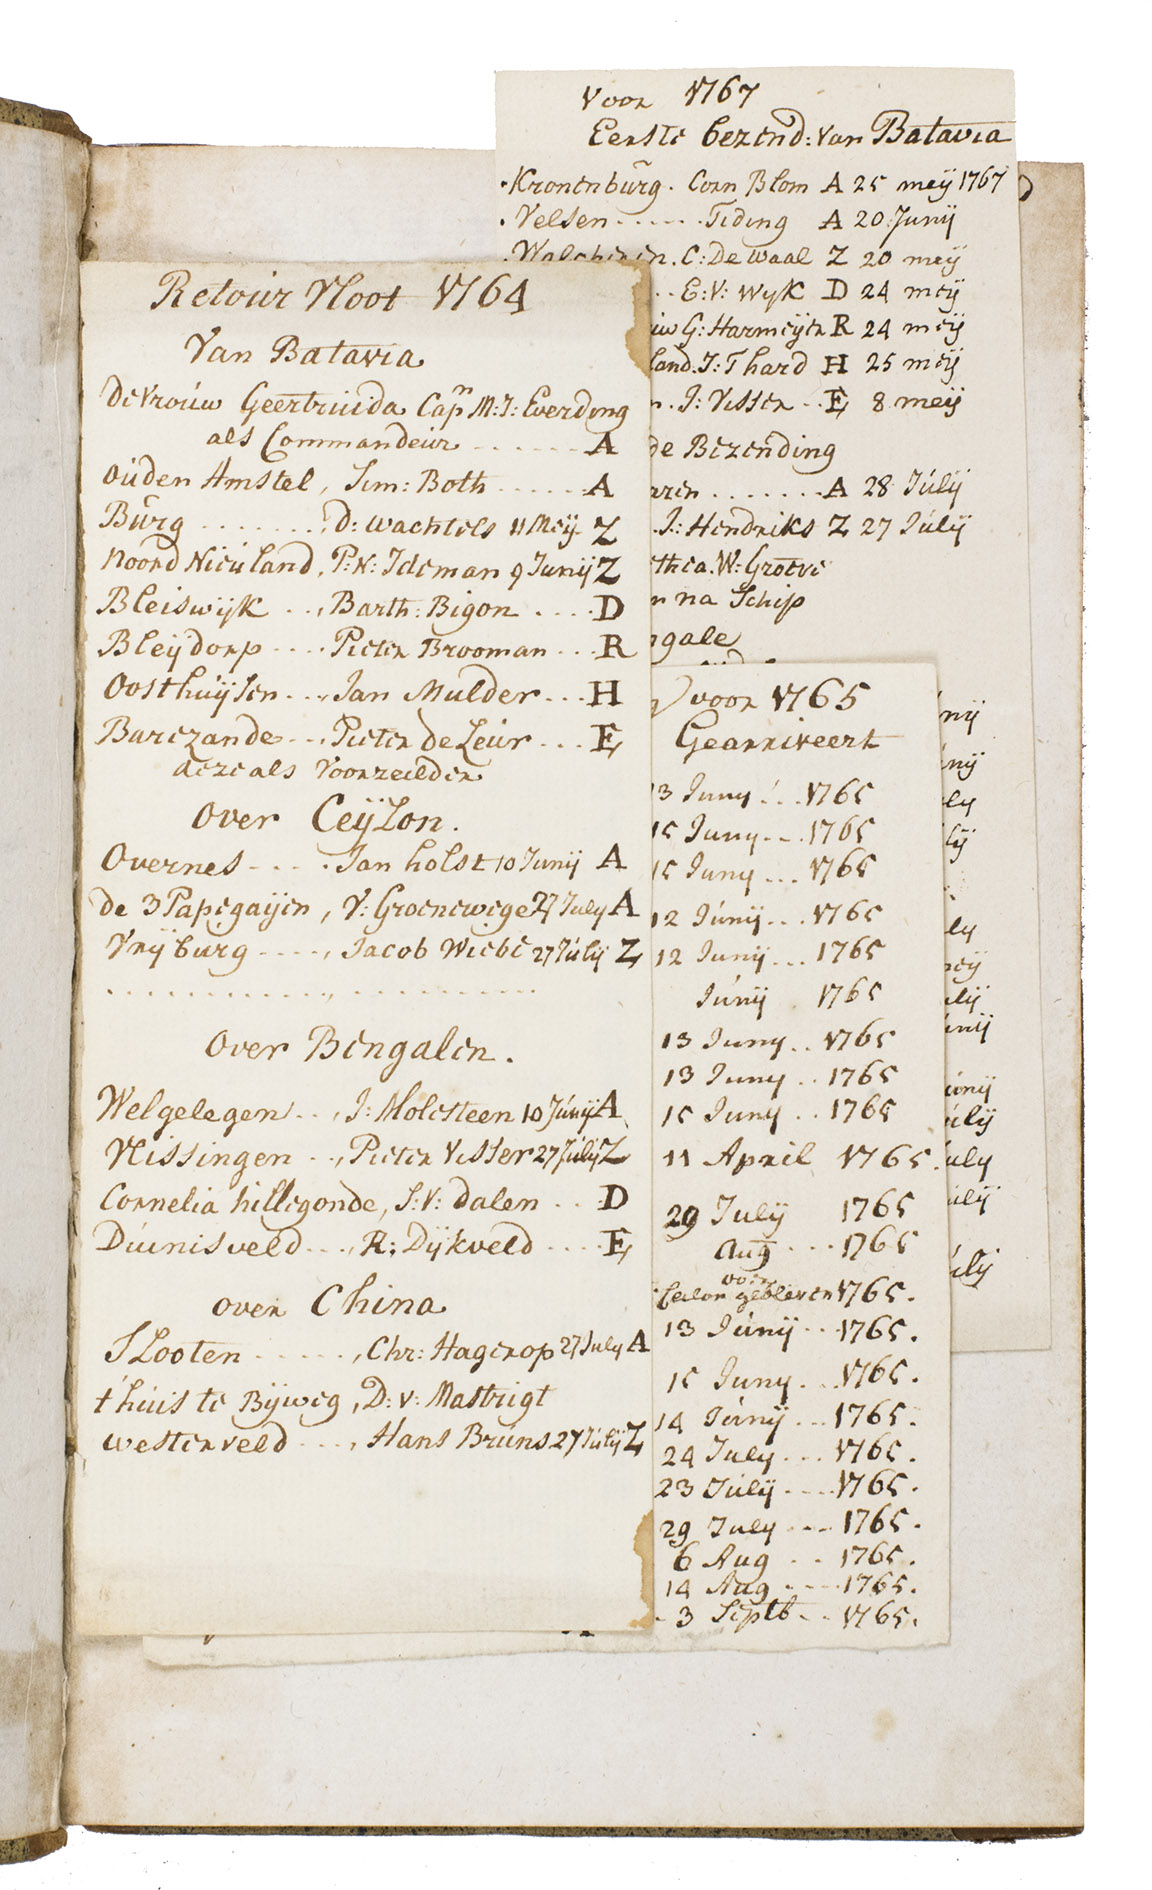 Voor 1767
Eerste bezend: van Batavia
Kronenburg . Corn Blom A 25 meij 1767
Velsen ...... Tiding A 20 Junij
Walcheren. C: De Waal Z 20 meij
.. E: V: Wijk D 24 meij
uw G: Harmeijer R 24 meij
land. J: Thard H 25 meij
. J: Visser .. E 8 meij
de Bezending
aren ....... A 28 Julij
. J: Hendriks Z 27 Julij
thea. W: Groeve
n na Schip
ngale
Retour Vloot 1764
Van Batavia
De Vrouw Geertruida Capn M: J: Everding
als Commandeur ...... A
Ouden Amstel, Sim: Both ...... A
Burg ........, D: Wachtels 11 Meij Z
Noord Nieuland, P: N: Ideman 9 Junij Z
Bleiswijk ..., Barth: Bigon .... D
Bleijdorp .... Pieter Brooman ... R
Oosthuijsen ..., Jan Mulder ... H
Barezande ..., Pieter de Leur ... E
deze als Voorzeilder
Over Ceijlon.
Overnes ..... Jan holst 10 Junij A
de 3 Papegaijen, V: Groenewege 27 July A
Vrijburg ....., Jacob Wiebe 27 Julij Z
............, ............
Over Bengalen.
Welgelegen ..., J: Molesteen 10 Junij A
Vlissingen .., Pieter Visser 27 Julij Z
Cornelia hillegonde, S: V: Dalen .. D
Duinisveld ..., R: Dijkveld .... E
over China
Slooten ......, Chr: Hagerop 27 July A
t huis te Bijweg, D: v: Mastrigt
Westerveld ...., Hans Bruns 27 Julij Z
voor 1765
Gearriveert
13 Juny ... 1765
15 Juny ... 1765
15 Juny ... 1765
12 Junij ... 1765
12 Junij ... 1765
Junij . 1765
13 Juny .. 1765
13 Juny .. 1765
15 Juny .. 1765
11 April 1765.
29 Julij 1765
Aug ... 1765
voor
Ceilon gebleven 1765.
13 Junij .. 1765.
15 Juny ... 1765.
14 Junij ... 1765.
24 July ... 1765.
23 Julij .... 1765.
29 July .... 1765.
6 Aug .. 1765.
14 Aug .... 1765.
3 Septb .. 1765.
nij
nij
ly
lij
ly
meij
ulij
unij
unij
ulij
uly
ulij
ulij